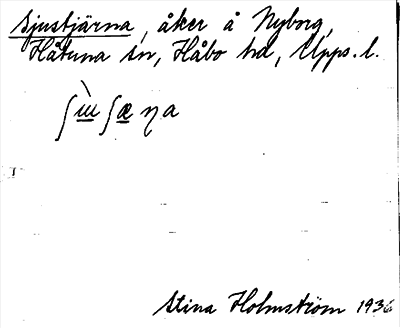 Sjustjärna, åker å Nyborg,
Håtuna sn, Håbo hd, Upps. l.
ʃɯ̀ʃæŋa
Stina Holmström 1936